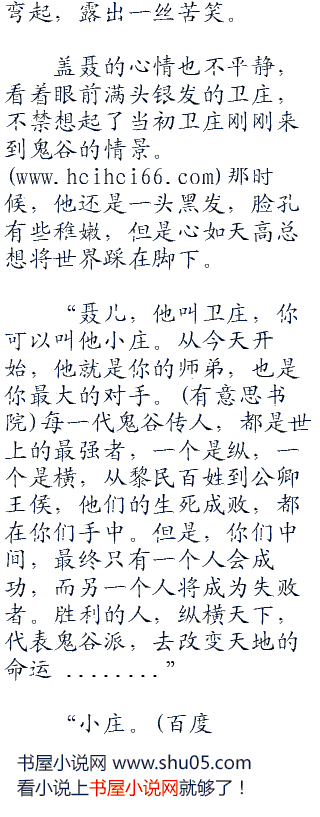 弯起，露出一丝苦笑。
盖聂的心情也不平静，
看着眼前满头银发的卫庄，
不禁想起了当初卫庄刚刚来
到鬼谷的情景。
(www.hcihci66.com)那时
候，他还是一头黑发，脸孔
有些稚嫩，但是心如天高总
想将世界踩在脚下。
“聂儿，他叫卫庄，你
可以叫他小庄。从今天开
始，他就是你的师弟，也是
你最大的对手。(有意思书
院)每一代鬼谷传人，都是世
上的最强者，一个是纵，一
个是横，从黎民百姓到公卿
王侯，他们的生死成败，都
在你们手中。但是，你们中
间，最终只有一个人会成
功，而另一个人将成为失败
者。胜利的人，纵横天下，
代表鬼谷派，去改变天地的
命运 ........”
“小庄。(百度
书屋小说网 www.shu05.com
看小说上书屋小说网就够了！